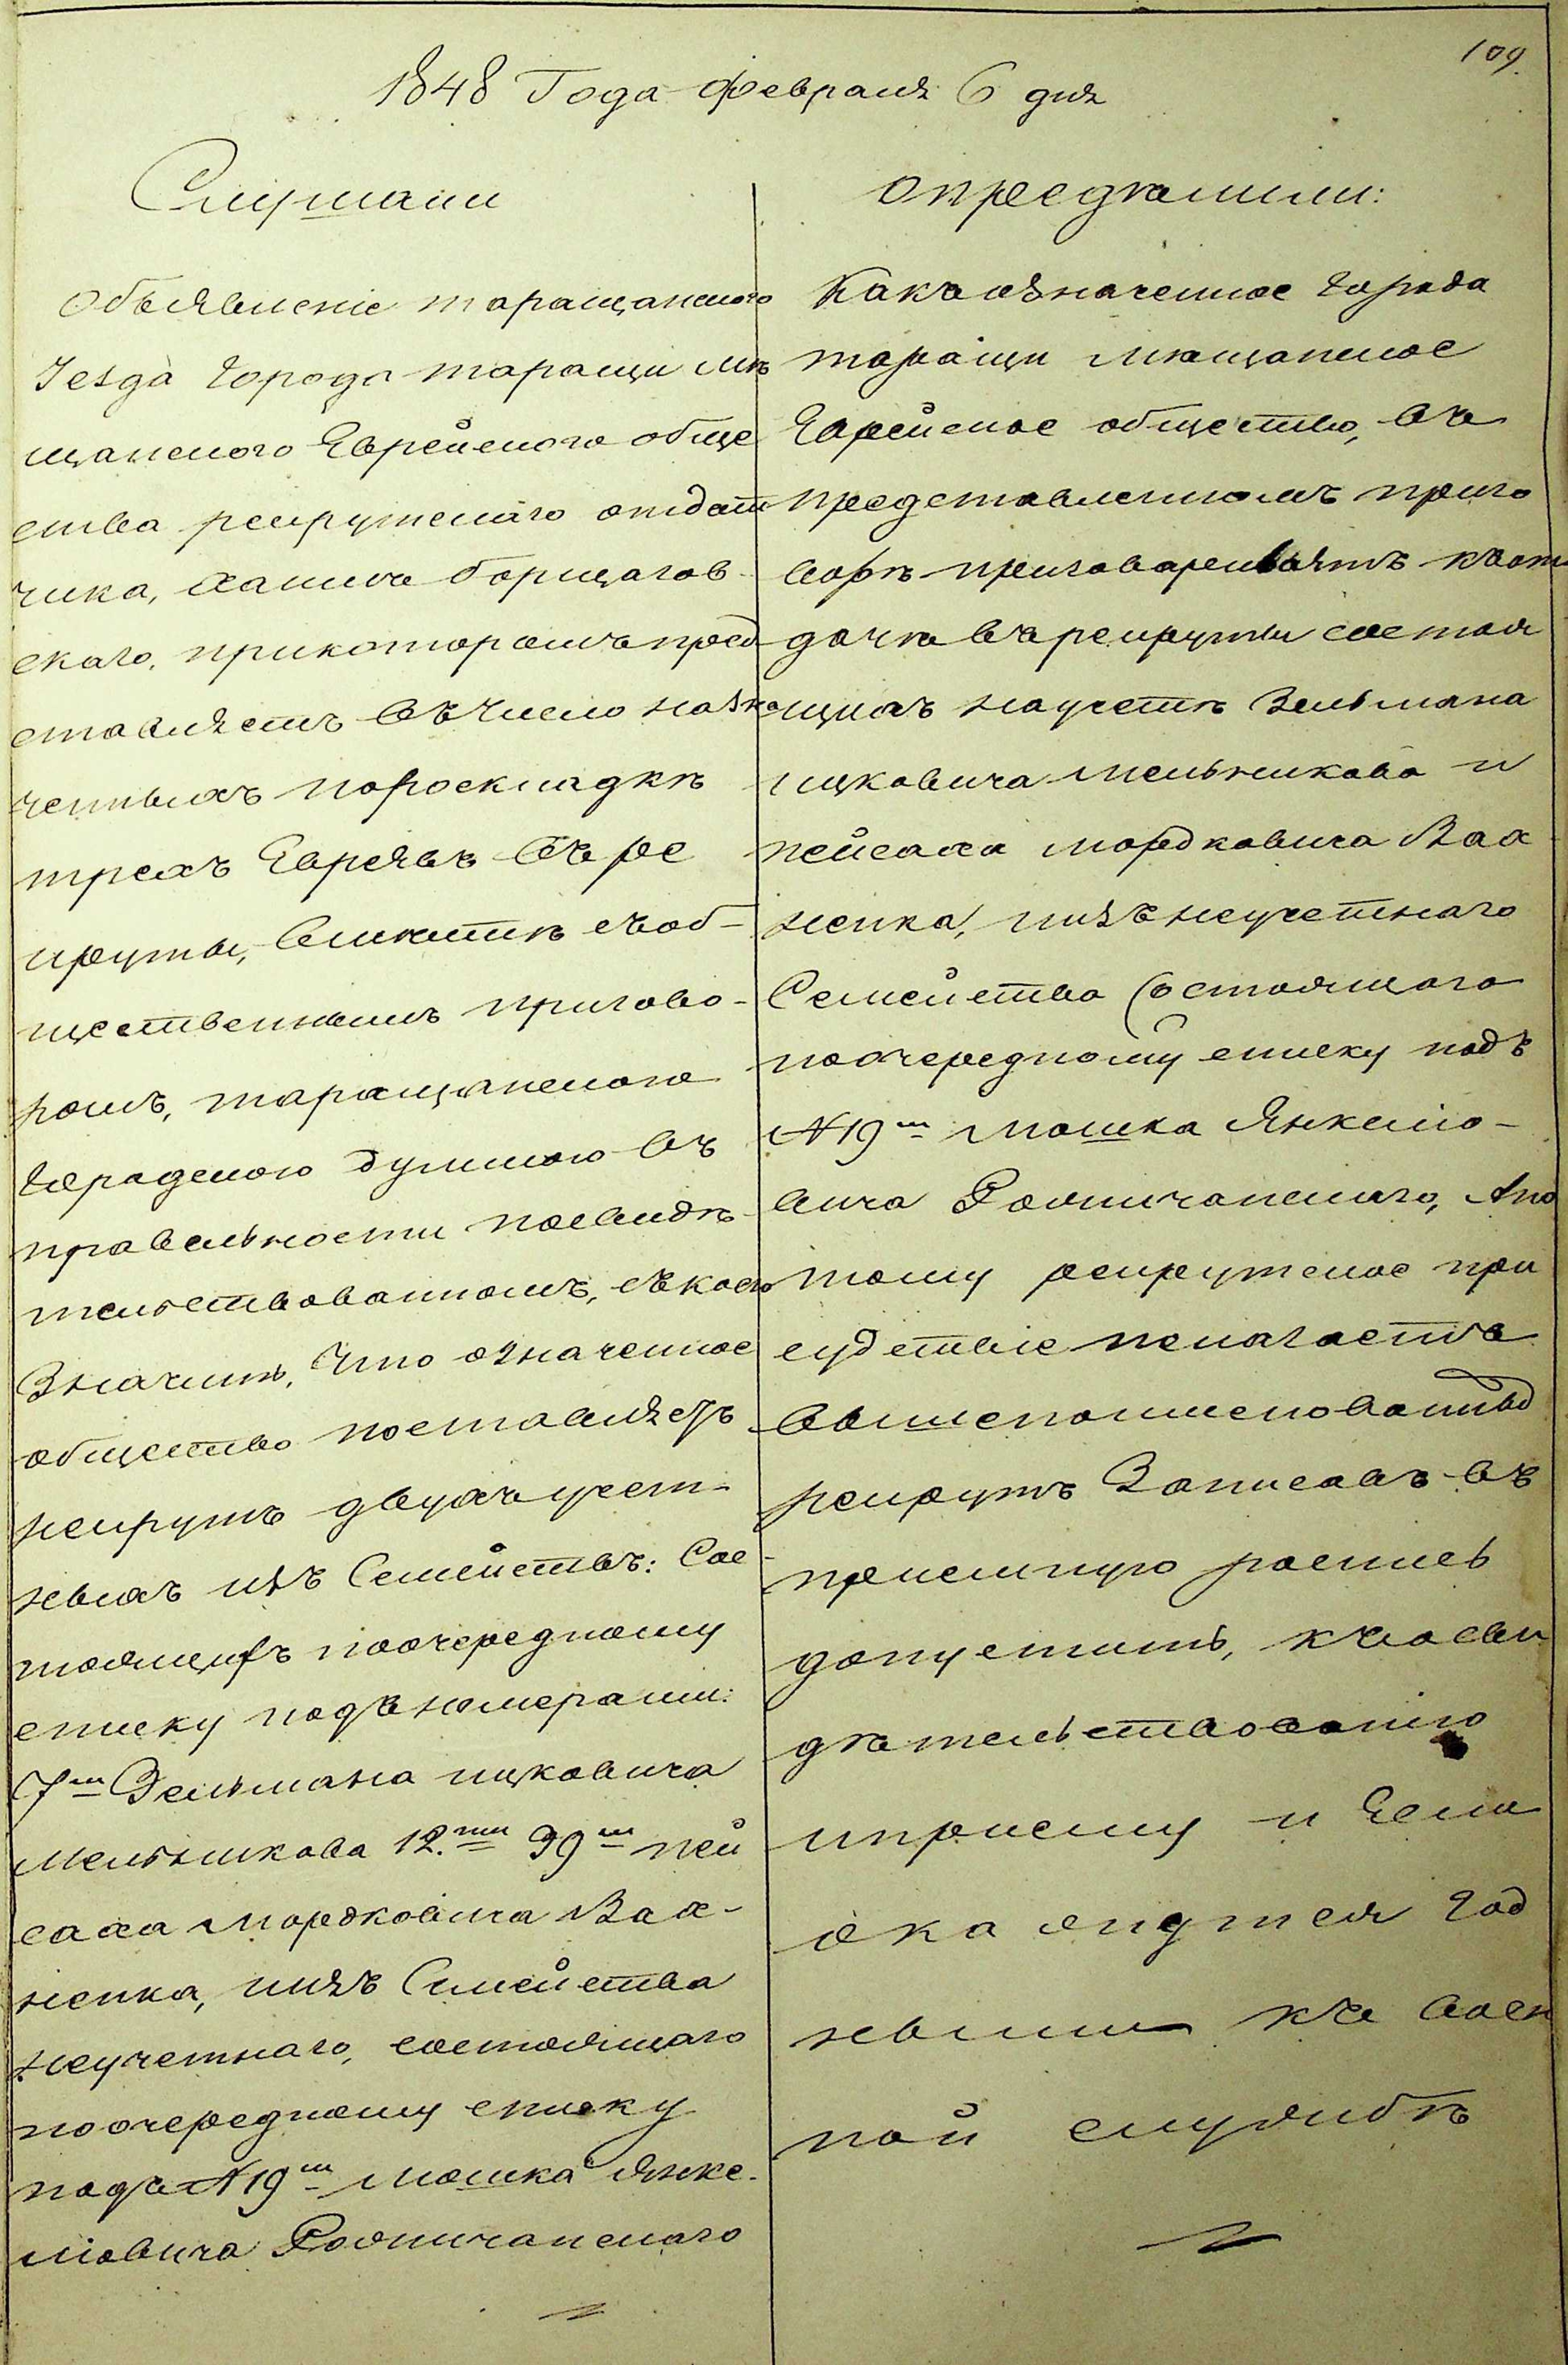 109.
1848 Года февраля 6 дня
Слушали
Объявленіе таращанского
Уезда города таращи мѣ
щанского Еврейского обще
ства рекрутскаго отдат
чика, Хаима борщагов-
скаго, прикоторомъ пред
ставляетъ въ число назна
ченныхъ пораскладкѣ
трехъ Евреевъ въ ре
круты, вместѣ съ об-
щественнымъ пригово-
ромъ, таращанскою
городскою думою въ
правельности посвидѣ-
тельствованномъ, съ коего
Значитъ, Что означенное
общество поставляетъ
рекрутъ двухъ учет-
ныхъ изъ Семействъ: Сос
тоящихъ поочередному
списку подъ номерами:
7м Зельмана ицковича
Мельникова 12.мъ 39м пей
саха мордковича Вах-
ненка, изъ Семейства
неучетнаго, состоящаго
поочередному списку
подъ N 19м Мошка Янке-
ліовича
опредѣлили:
Какъ означенное города
таращи мѣщанское
Еврейское общество, въ
представленномъ приго
ворѣ приговариваятъ къ от
дачѣ въ рекруты состоя
щихъ на учетѣ Зельмана
ицковича мельникова и
пейсаха мордковича Вах-
ненка, изъ неучетнаго
Семейства состоящаго
поочередному списку подъ
N 19м Мошка Янкеліо-
вича Апо
тому рекрутское при
судствіе пологаетъ
вышепоименованныхъ
рекрутъ Записавъ въ
приемную роспись
допустить, къ освѣ
дѣтельствованію
иприему и Если
окажутся год
ными къ воен
ной службѣ